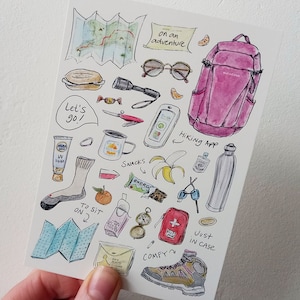 on an
adventure
Let's
go!
Hiking App
Snacks
To sit
on
Just
in case
Comfy